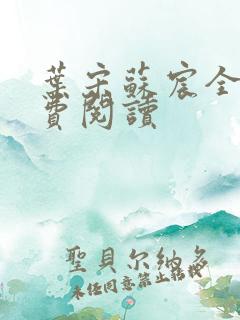 葉宋蘇宸全
費閱讀
聖貝尔納多
未经同意禁止转载